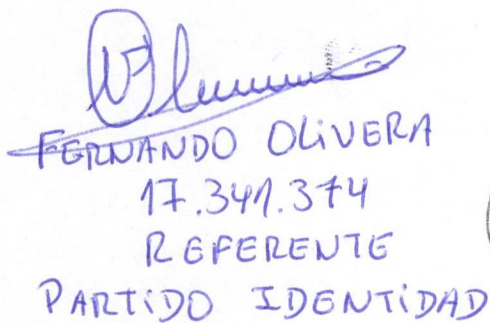 FERNANDO OLIVERA
17.341.374
REFERENTE
PARTIDO IDENTIDAD